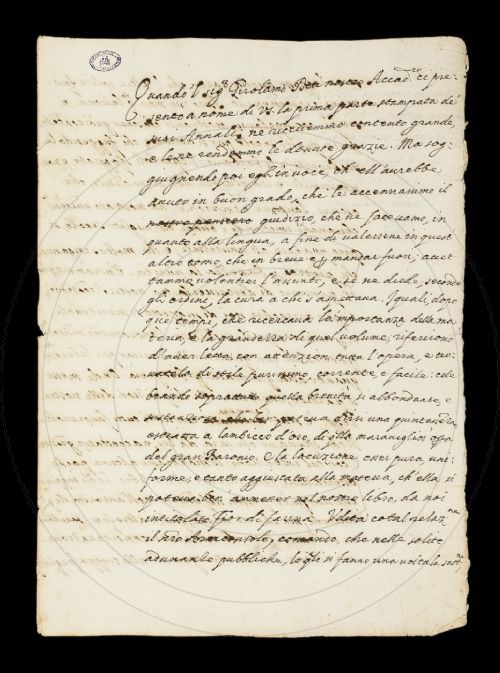 Quando 'l sig.r Girolamo nostro Accad.co ci pre-
sentò a nome di VS. la prima parte stampata de'
suoi Annali, ne ricevemmo contento grande,
e le ne rendemmo le dovute grazie. Ma sog-
giugnendo poi egli in voce, ch'ell'avrebbe
avuto in buon grado, che le accennassimo il
nostro pensiero giudizio, che ne facevamo, in
quanto alla lingua, a fine di valersene in quest
altro tomo, che in breve è mandar fuori; accet
tammo volentieri l'assunto, e se ne diede, secondo
gli ordini, la cura a chi s'aspettava. I quali, dopo
quel tempo, che ricercava la 'mportanza della ma
teria, e la grandezza di quel volume, riferirono
d'aver letta con attenzion tutta l'opera, e tro-
vatola di stile purissimo, corrente, e facile: cele
brando soprattutto quella brevità sì abbondante, e
poteva dirsi una quintessenza
estratta a lambicco d'oro, di q.lla maravigliosa
del gran Baronio. E la locuzione esser pura, uni-
forme, e tanto aggiustata alla materia, ch'ella si
poteva ben annoverar nel nostro libro, da noi
intitolato Fior di farina. Udita cotal relaz.ne
il n'ro Arciconsolo, comandò, che nelle solite
adunanze pubbliche, le q.li si fanno una volta la sett.na,